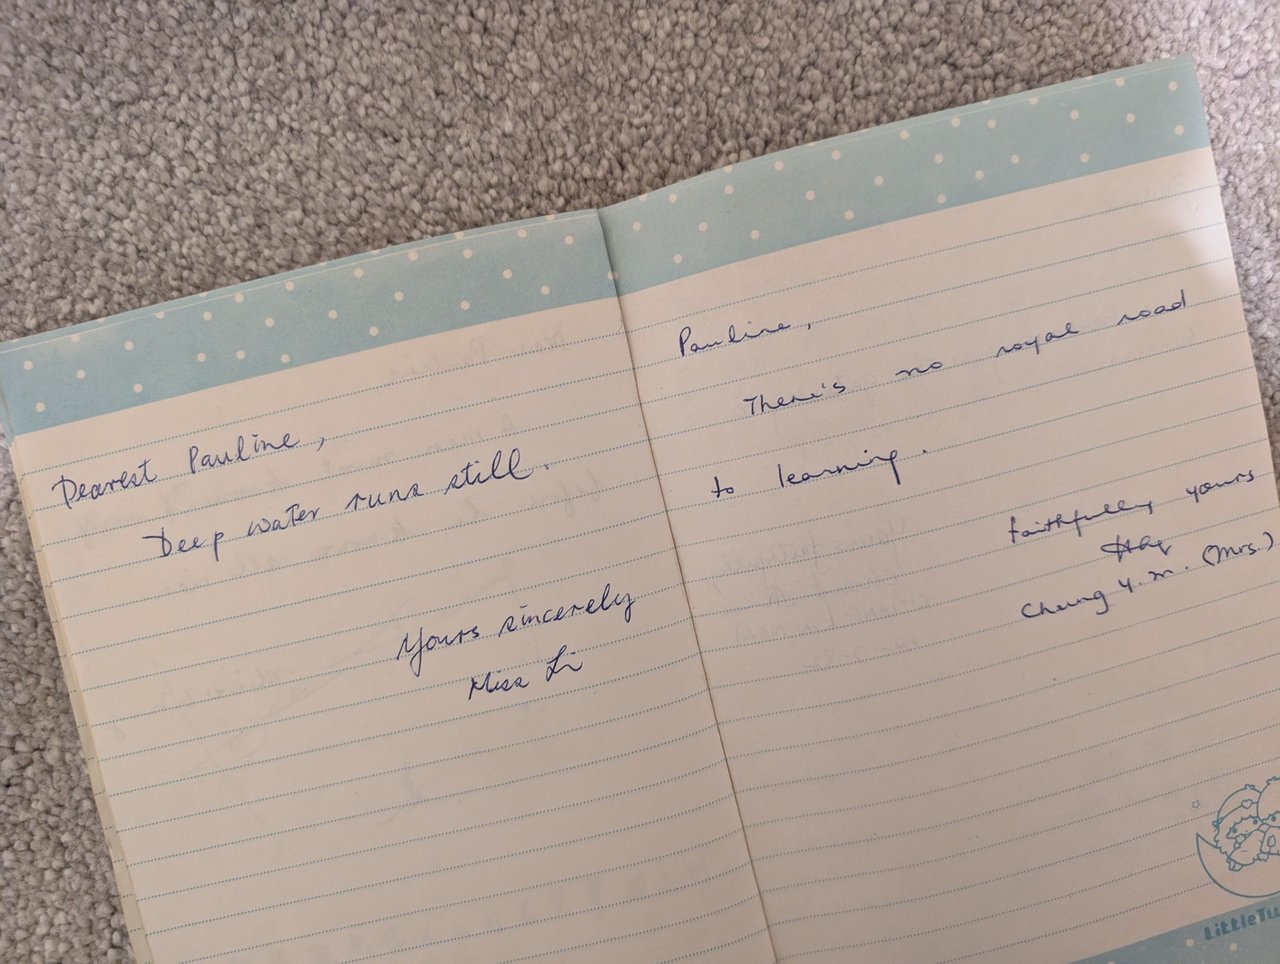 Dearest Pauline,
Deep water runs still.
Yours sincerely
Miss Li
Pauline,
There's no royal road
to learning.
faithfully yours
Cheung Y. M. (Mrs.)
LittleTw